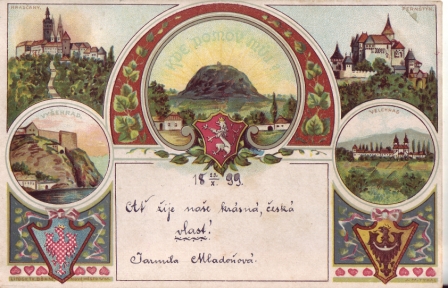 HRADČANY.
KDE DOMOV MŮJ
PERNŠTÝN.
VYŠEHRAD.
VELEHRAD.
18 23/X. 99.
Ať žije naše krásná, česká
vlast!
Jarmila Mladoňová.